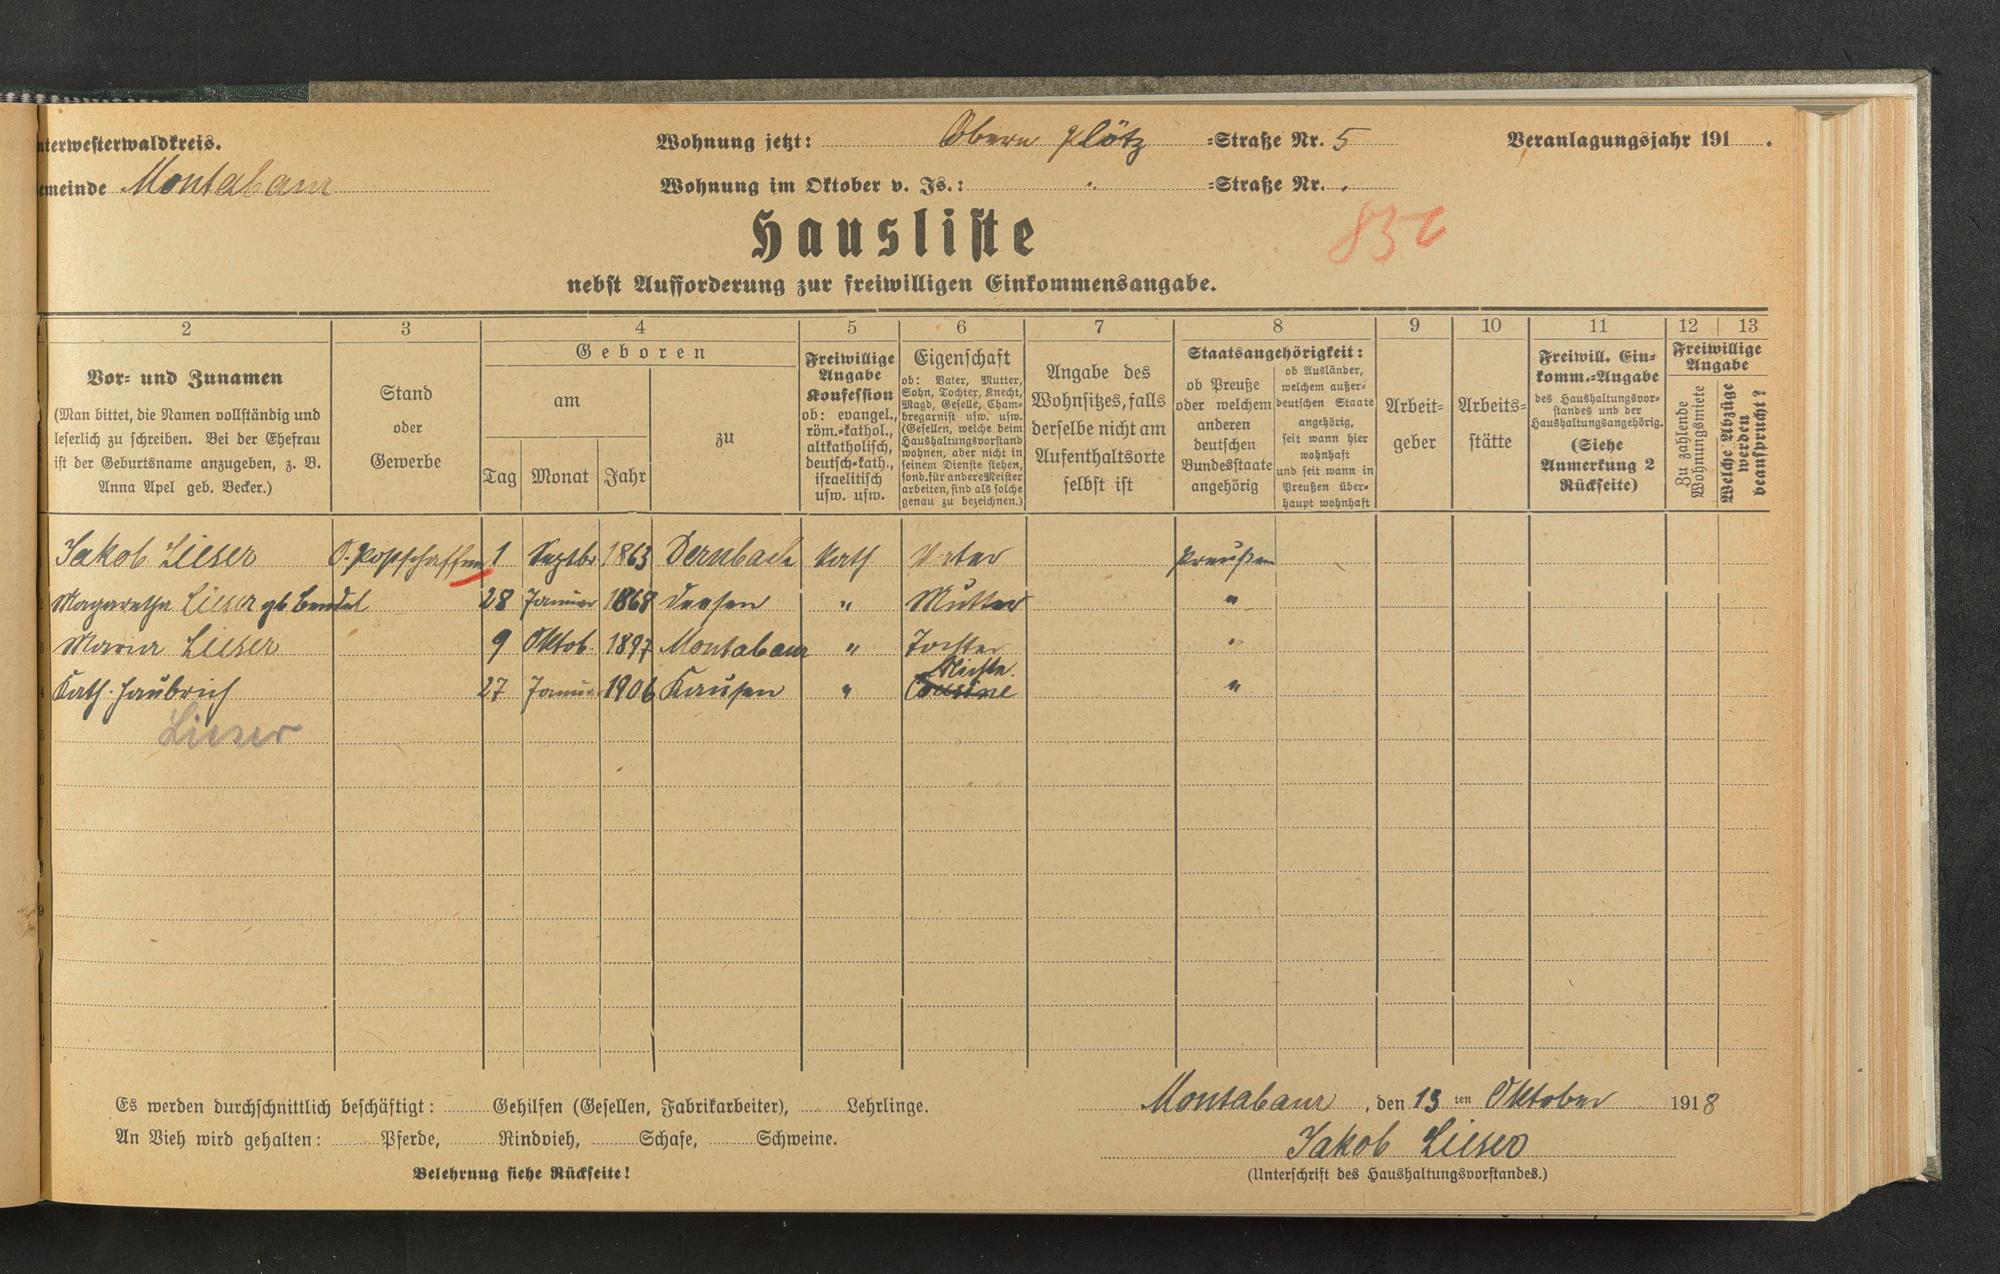 nterwesterwaldkreis.
Wohnung jetzt: Obern Plötz =Straße Nr. 5
Veranlagungsjahr 191 .
emeinde Montabaur
Wohnung im Oktober v. Js.: " =Straße Nr. "
Hausliste
nebst Aufforderung zur freiwilligen Einkommensangabe.
2 3 4 5 6 7 8 9 10 11 12 13
Vor- und Zunamen
(Man bittet, die Namen vollständig und
leserlich zu schreiben. Bei der Ehefrau
ist der Geburtsname anzugeben, z. B.
Anna Apel geb. Becker.)
Stand
oder
Gewerbe
Geboren
am
Tag Monat Jahr
zu
Freiwillige
Angabe
Konfession
ob: evangel.,
röm.-kathol.,
altkatholisch,
deutsch-kath.,
israelitisch
usw. usw.
Eigenschaft
ob: Vater, Mutter,
Sohn, Tochter, Knecht,
Magd, Geselle, Cham-
bregarnist usw. usw.
(Gesellen, welche beim
Haushaltungsvorstand
wohnen, aber nicht in
seinem Dienste stehen,
sond. für andere Meister
arbeiten, sind als solche
genau zu bezeichnen.)
Angabe des
Wohnsitzes, falls
derselbe nicht am
Aufenthaltsorte
selbst ist
Staatsangehörigkeit:
ob Preuße
oder welchem
anderen
deutschen
Bundesstaate
angehörig
ob Ausländer,
welchem außer-
deutschen Staate
angehörig,
seit wann hier
wohnhaft
und seit wann in
Preußen über-
haupt wohnhaft
Arbeit-
geber
Arbeits-
stätte
Freiwill. Ein-
komm.-Angabe
des Haushaltungsvor-
standes und der
Haushaltungsangehörig.
(Siehe
Anmerkung 2
Rückseite)
Freiwillige
Angabe
Zu zahlende
Wohnungsmiete
Welche Abzüge
werden
beansprucht?
Jakob Lieser O. Postschaffner 1 Septbr 1863 Dernbach Kath Vater Preußen
Magaretha Lieser gb Bendel 28 Januar 1868 Deesen " Mutter "
3 Maria Lieser 9 Oktob. 1897 Montabaur " Tochter "
Nichte.
4 Kath. Haubrich 27 Januar 1906 Kausen " Cousine "
5 Lieser
6
7
8
9
Es werden durchschnittlich beschäftigt: Gehilfen (Gesellen, Fabrikarbeiter), Lehrlinge.
An Vieh wird gehalten: Pferde, Rindvieh, Schafe, Schweine.
Belehrung siehe Rückseite!
Montabaur, den 13 ten Oktober 1918
Jakob Lieser
(Unterschrift des Haushaltungsvorstandes.)